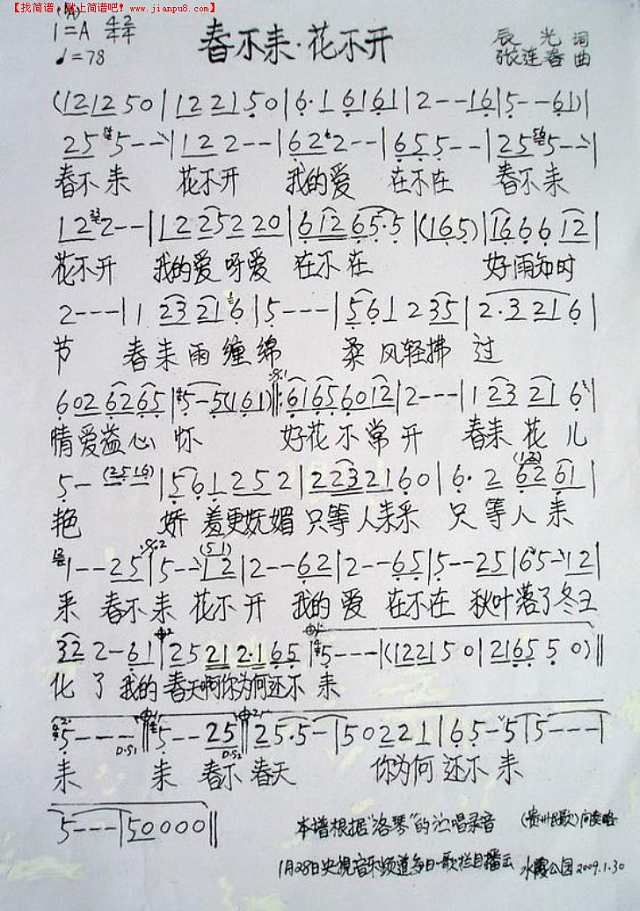 【找简谱，就上简谱吧！www.jianpu8.com】
1=A 4/4 2/4
♩=78
春不来·花不开
辰光 词
张连春 曲
(1212 50|1221 50|6·1 6161|2---16|5---61)|
25 5---|122---|622---|655---|25 5---|
春不来 花不开 我的爱 在不在 春不来
122---|12252220|612665·5|(165)|166612|
花不开 我的爱呀爱 在不在 好雨知时
2---|1 23 21 6|5---|561 2 35|2·3 21 6|
节 春来雨缠绵 柔风轻拂 过
602 62 65|5-5(161)|6165 6012|2---|1 23 21 6|
情爱益心怀 好花不常开 春来花儿
5-(2516)|5612252|2232160|6·2 62 61|
艳 娇羞更妩媚只等人来采 只等人来
1--25|5--12|2--62|2--65|5--25|65-12|
采 春不来 花不开 我的爱 在不在 秋叶落了冬又
32 2-61|25 21 2·1 65|5---|(122150|216550)||
化了我的春天啊你为何还不来
5---|5--25|25·5-|50221|65-5|5---|
来 来 春不春天 你为何还不来
5---|50000||
本谱根据“洛琴”的演唱录音
1月28日央视音乐频道每日一歌栏目播出
2009.1.30